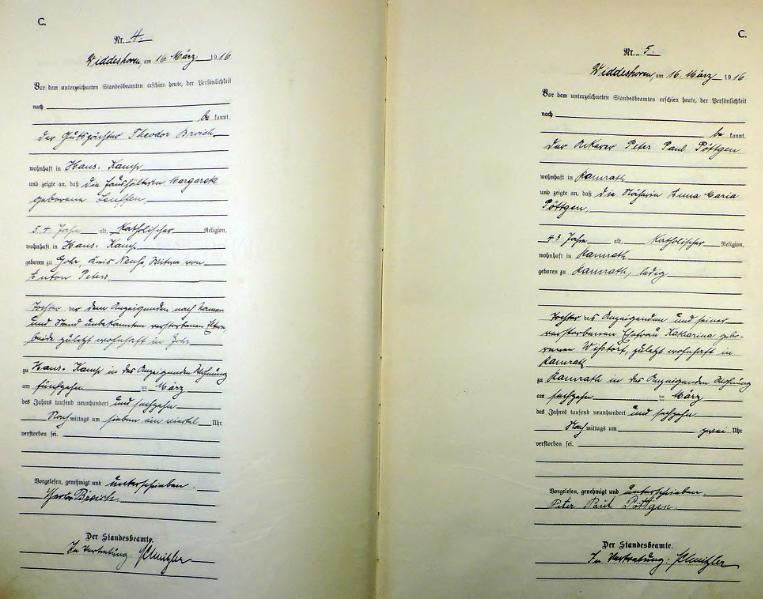 C.
Nr. 4.
Widdeshoven, am 16. März 1916
Vor dem unterzeichneten Standesbeamten erschien heute, der Persönlichkeit
nach
be kannt,
der Gutspächter Theodor Broich
wohnhaft in Haus-Kamp
und zeigte an, daß die Haushälterin Margarete
geborene
54 Jahre alt, Katholischer Religion,
wohnhaft in Haus-Kamp
geboren zu Gohr, Kreis Neuss, Witwe von
Anton Peters
Tochter der dem Anzeigenden nach Namen
und Stand unbekannten verstorbenen Eltern
beide zuletzt wohnhaft in Gohr
zu Haus-Kamp in des Anzeigenden Wohnung
am fünfzehn ten März
des Jahres tausend neunhundert und sechzehn
Nach mittags um sieben ein viertel Uhr
verstorben sei.
Vorgelesen, genehmigt und unterschrieben.
Theodor Broich
Der Standesbeamte.
In Vertretung:
C.
Nr. 5.
Widdeshoven, am 16. März 1916
Vor dem unterzeichneten Standesbeamten erschien heute, der Persönlichkeit
nach
be kannt,
der Ackerer Peter Paul Pöttgen
wohnhaft in Ramrath
und zeigte an, daß die Näherin Anna Maria
Pöttgen,
43 Jahre alt, Katholischer Religion,
wohnhaft in Ramrath
geboren zu Ramrath, ledig
Tochter des Anzeigenden und seiner
verstorbenen Ehefrau Katharina gebo-
renen zuletzt wohnhaft in
Ramrath
zu Ramrath in des Anzeigenden Wohnung
am sechzehn ten März
des Jahres tausend neunhundert und sechzehn
Nach mittags um zwei Uhr
verstorben sei.
Vorgelesen, genehmigt und unterschrieben.
Peter Paul Pöttgen.
Der Standesbeamte.
In Vertretung: